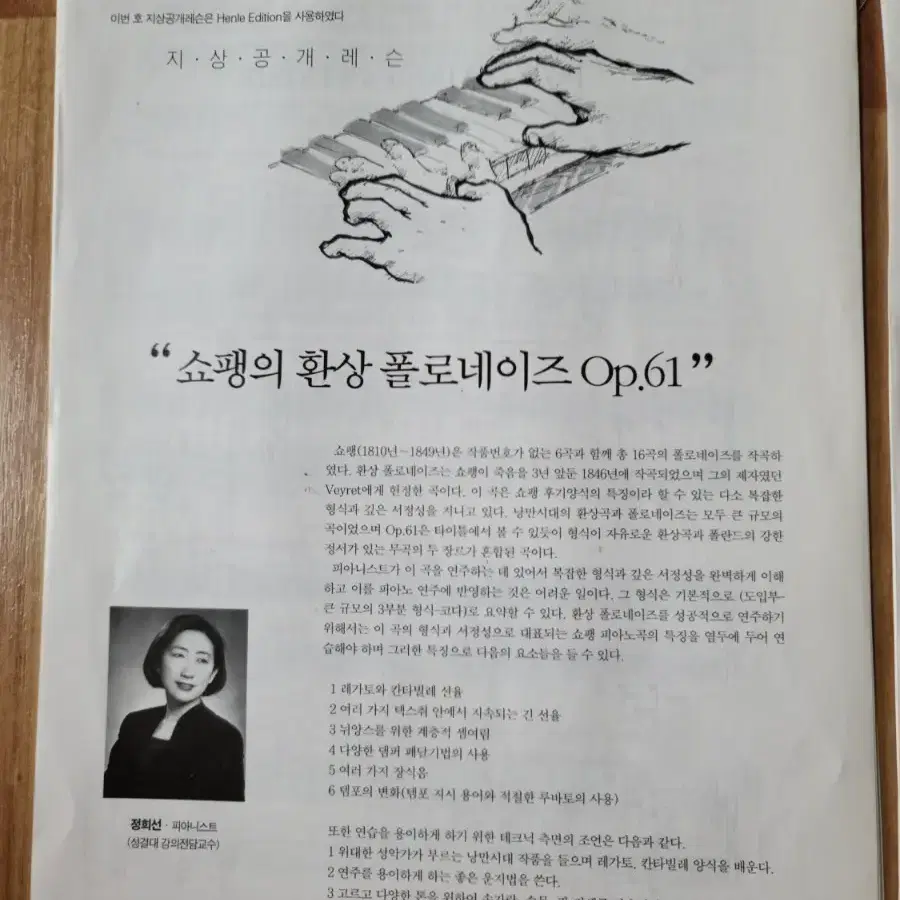 이번 호 지상공개레슨은 Henle Edition을 사용하였다
지·상·공·개·레·슨
“쇼팽의 환상 폴로네이즈 Op.61”
쇼팽(1810년~1849년)은 작품번호가 없는 6곡과 함께 총 16곡의 폴로네이즈를 작곡하
였다. 환상 폴로네이즈는 쇼팽이 죽음을 3년 앞둔 1846년에 작곡되었으며 그의 제자였던
Veyret에게 헌정한 곡이다. 이 곡은 쇼팽 후기양식의 특징이라 할 수 있는 다소 복잡한
형식과 깊은 서정성을 지니고 있다. 낭만시대의 환상곡과 폴로네이즈는 모두 큰 규모의
곡이었으며 Op.61은 타이틀에서 볼 수 있듯이 형식이 자유로운 환상곡과 폴란드의 강한
정서가 있는 무곡의 두 장르가 혼합된 곡이다.
피아니스트가 이 곡을 연주하는 데 있어서 복잡한 형식과 깊은 서정성을 완벽하게 이해
하고 이를 피아노 연주에 반영하는 것은 어려운 일이다. 그 형식은 기본적으로 (도입부-
큰 규모의 3부분 형식-코다)로 요약할 수 있다. 환상 폴로네이즈를 성공적으로 연주하기
위해서는 이 곡의 형식과 서정성으로 대표되는 쇼팽 피아노곡의 특징을 염두에 두어 연
습해야 하며 그러한 특징으로 다음의 요소들을 들 수 있다.
1 레가토와 칸타빌레 선율
2 여러 가지 텍스춰 안에서 지속되는 긴 선율
3 뉘앙스를 위한 계층적 셈여림
4 다양한 댐퍼 페달기법의 사용
5 여러 가지 장식음
6 템포의 변화(템포 지시 용어와 적절한 루바토의 사용)
정희선 · 피아니스트
(성결대 강의전담교수)
또한 연습을 용이하게 하기 위한 테크닉 측면의 조언은 다음과 같다.
1 위대한 성악가가 부르는 낭만시대 작품을 들으며 레가토, 칸타빌레 양식을 배운다.
2 연주를 용이하게 하는 좋은 운지법을 쓴다.
3 고르고 다양한 톤을 위하여 손가락, 손목, 팔